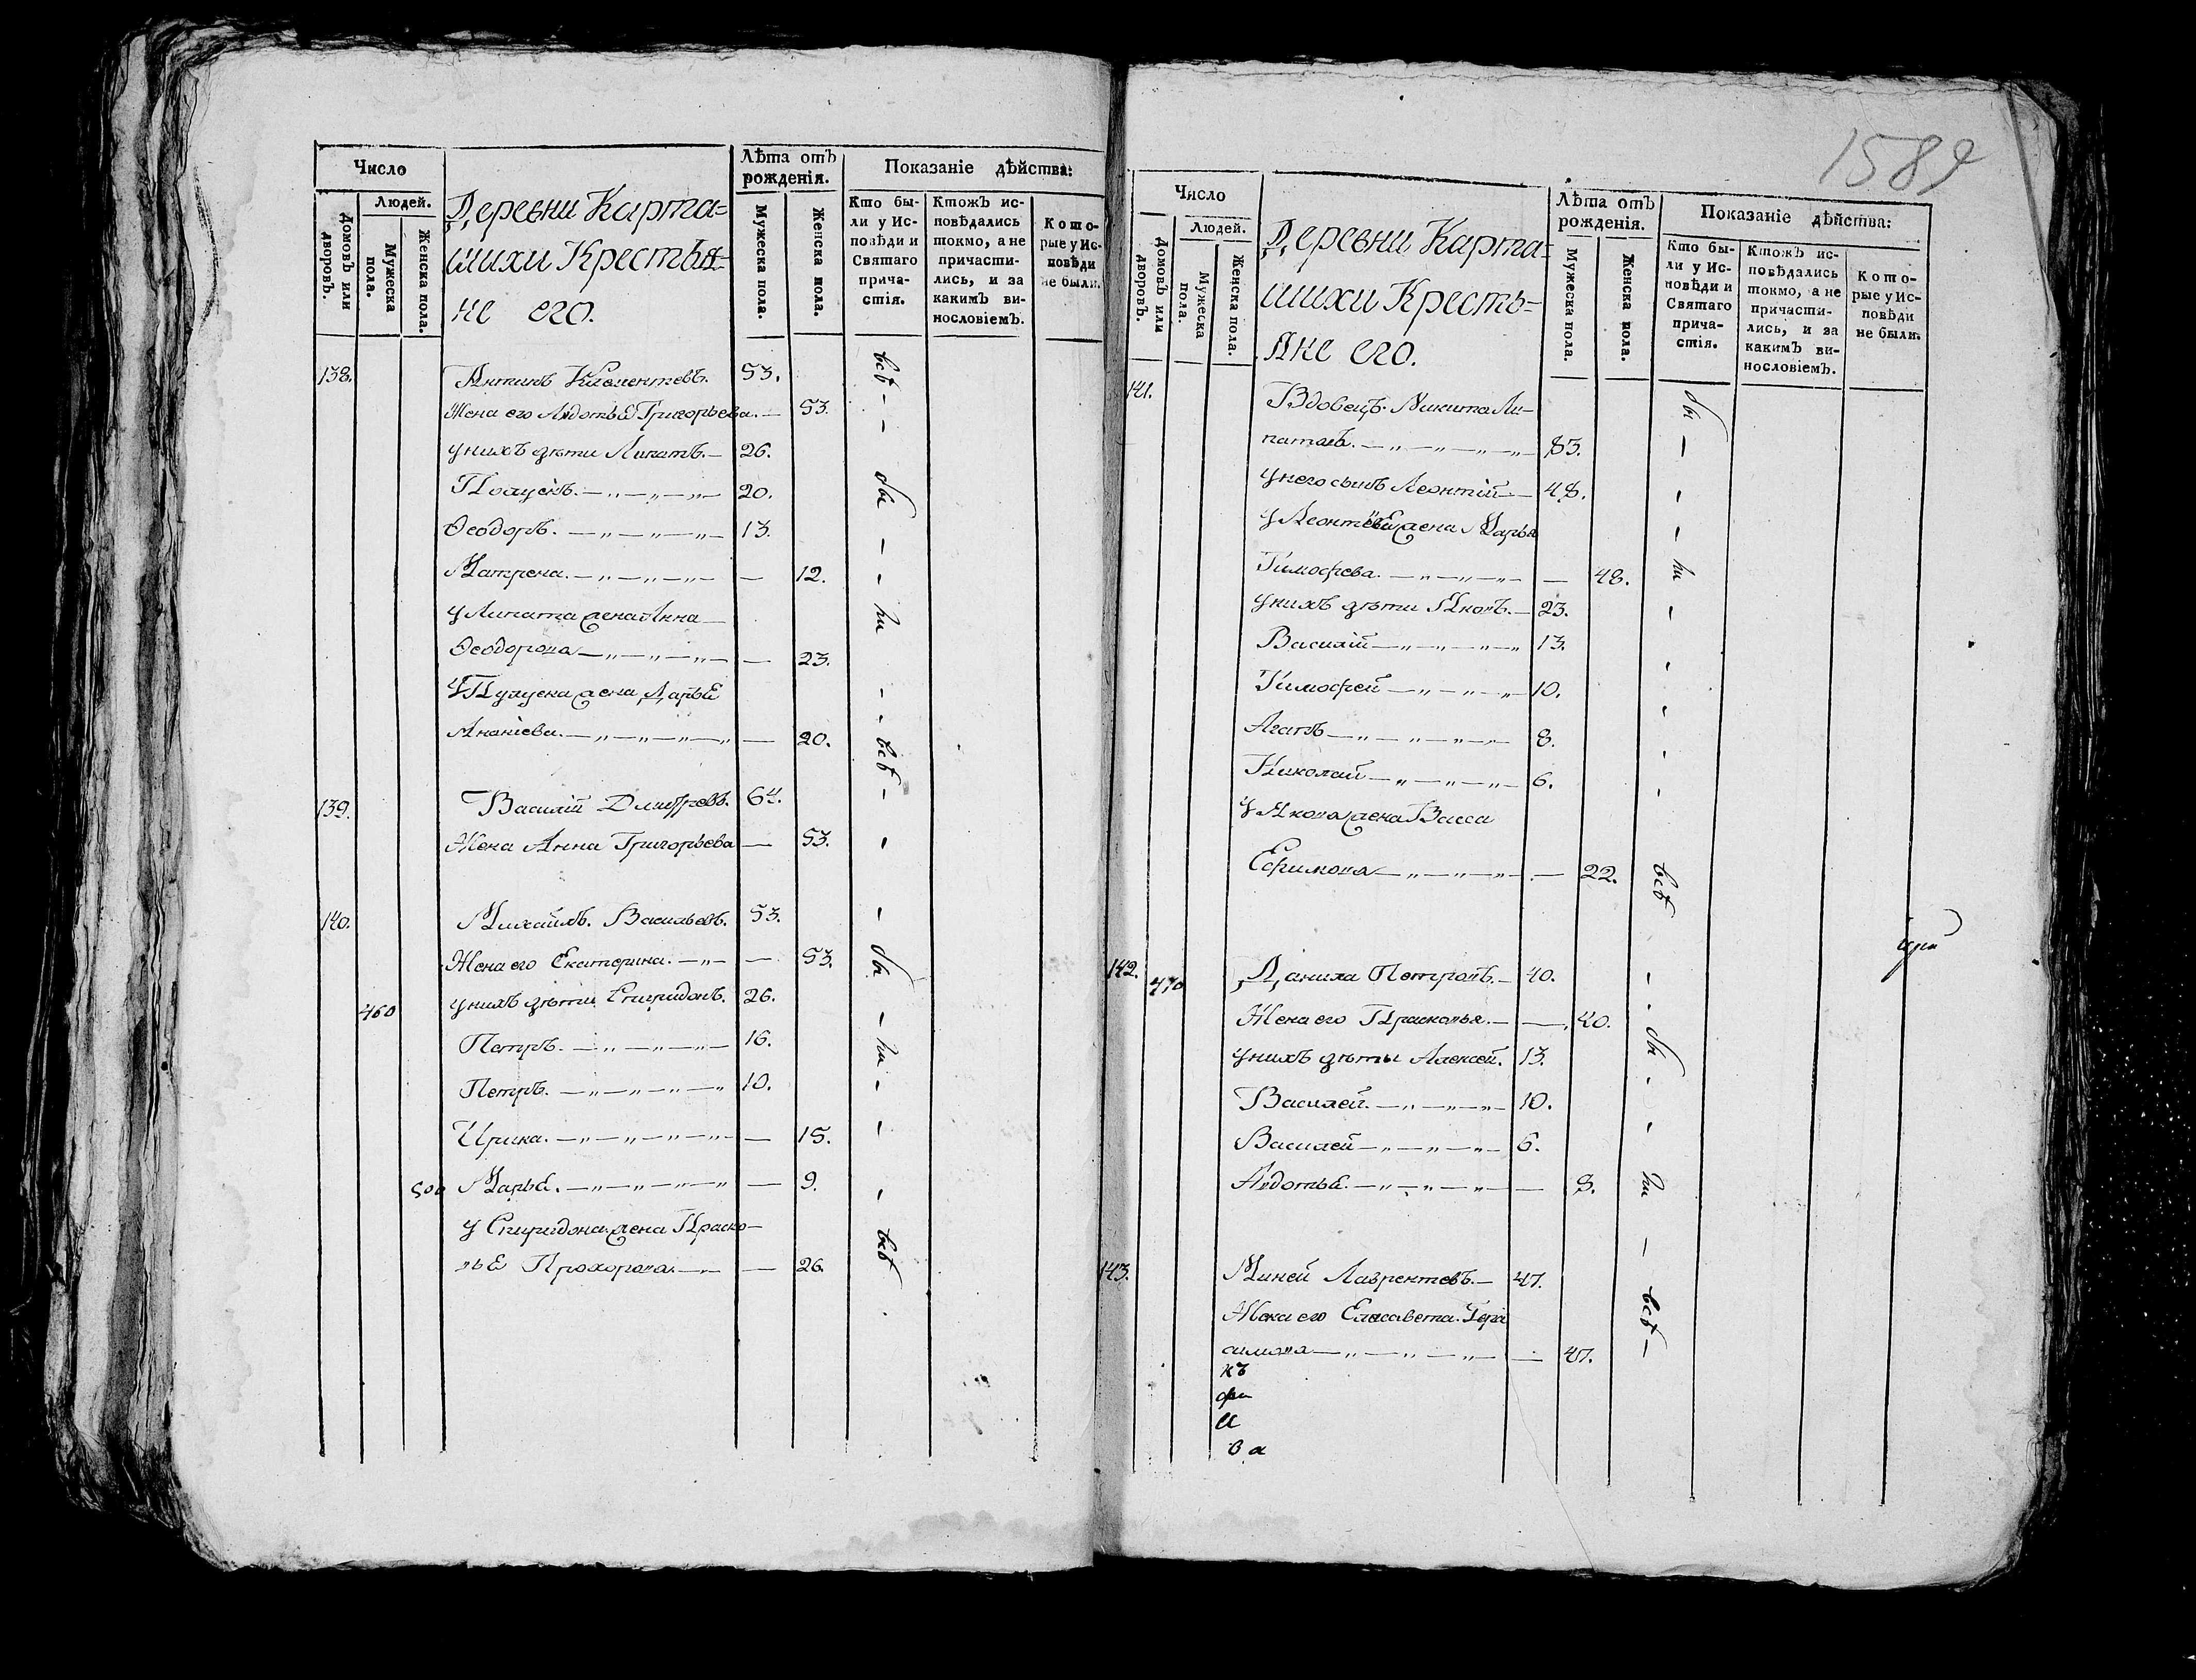 Число
Людей.
Домовъ или дворовъ.
Мужеска пола.
Женска пола.
Деревни Карта=
шихи Крестья=
не его.
Лѣта отъ рожденія.
Мужеска пола.
Женска пола.
Показаніе дѣйства:
Кто бы-
ли у Ис-
повѣди и
Святаго
прича-
стія.
Ктожъ ис-
повѣдались
токмо, а не
причасти-
лись, и за
какимъ ви-
нословіемъ.
Кото-
рые у Ис-
повѣди
не были.
138. Антипъ Клементевъ. 53.
Жена его Авдотья Григорьева. — 53.
у нихъ дѣти Липатъ. — 26.
20.
Ѳеодоръ. — „ — „ — „ — 13.
Матрена. — „ — „ — „ — — 12.
у Липата жена Анна —
Ѳеодорова — „ — „ — „ — — 23.
жена Дарья
Ананіева. — „ — „ — „ — „ — 20.
139. Василій Дмитревъ. 64.
Жена Анна Григорьева — 53.
140. Михайлъ. Васильевъ. 53.
Жена его Екатерина. — „ — — 53.
460 у нихъ дѣти Спиридонъ. 26.
Петръ. — „ — „ — „ — 16.
Петръ. — „ — „ — „ — „ 10.
Ирина. — „ — „ — „ — „ — — 15.
500 Марья. — „ — „ — „ — „ — 9.
у Спиридона жена Праско-
вья Прохорова. — „ — — 26.
всѣ — — бы — — ли — — всѣ — — — бы — ли — — — всѣ
1589
Число
Людей.
Домовъ или дворовъ.
Мужеска пола.
Женска пола.
Деревни Карта=
шихи Кресть=
яне его.
Лѣта отъ рожденія.
Мужеска пола.
Женска пола.
Показаніе дѣйства:
Кто бы-
ли у Ис-
повѣди и
Святаго
прича-
стія.
Ктожъ ис-
повѣдались
токмо, а не
причасти-
лись, и за
какимъ ви-
нословіемъ.
Кото-
рые у Ис-
повѣди
не были.
141. Вдовецъ. Никита Ли-
патовъ. — „ — „ — „ — „ — 83.
у него сынъ Леонтій — 48.
жена Марья
Тимофева. — „ — „ — „ — — 48.
у нихъ дѣти Яковъ. — 23.
Василій — „ — „ — „ — „ 13.
Тимофей — „ — „ — „ — 10.
Агапъ — „ — „ — „ — 8.
Николай — „ — „ — „ — 6.
у Якова жена Васса
Ефимова — „ — „ — „ — — 22.
142. 470 Данила Петровъ. — 40.
Жена его Прасковья. — — 40.
у нихъ дѣти Алексей. 13.
Василей. — „ — „ — „ — 10.
Василей — „ — „ — „ — 6.
Авдотья. — „ — „ — „ — — 8.
143. Миней Лаврентевъ. — 47.
Жена его Елисавета. Гера
симова — „ — „ — „ — — 47.
къ
фи
и
ва
бы — — — ли — — — — — всѣ — — бы — — ли — всѣ —